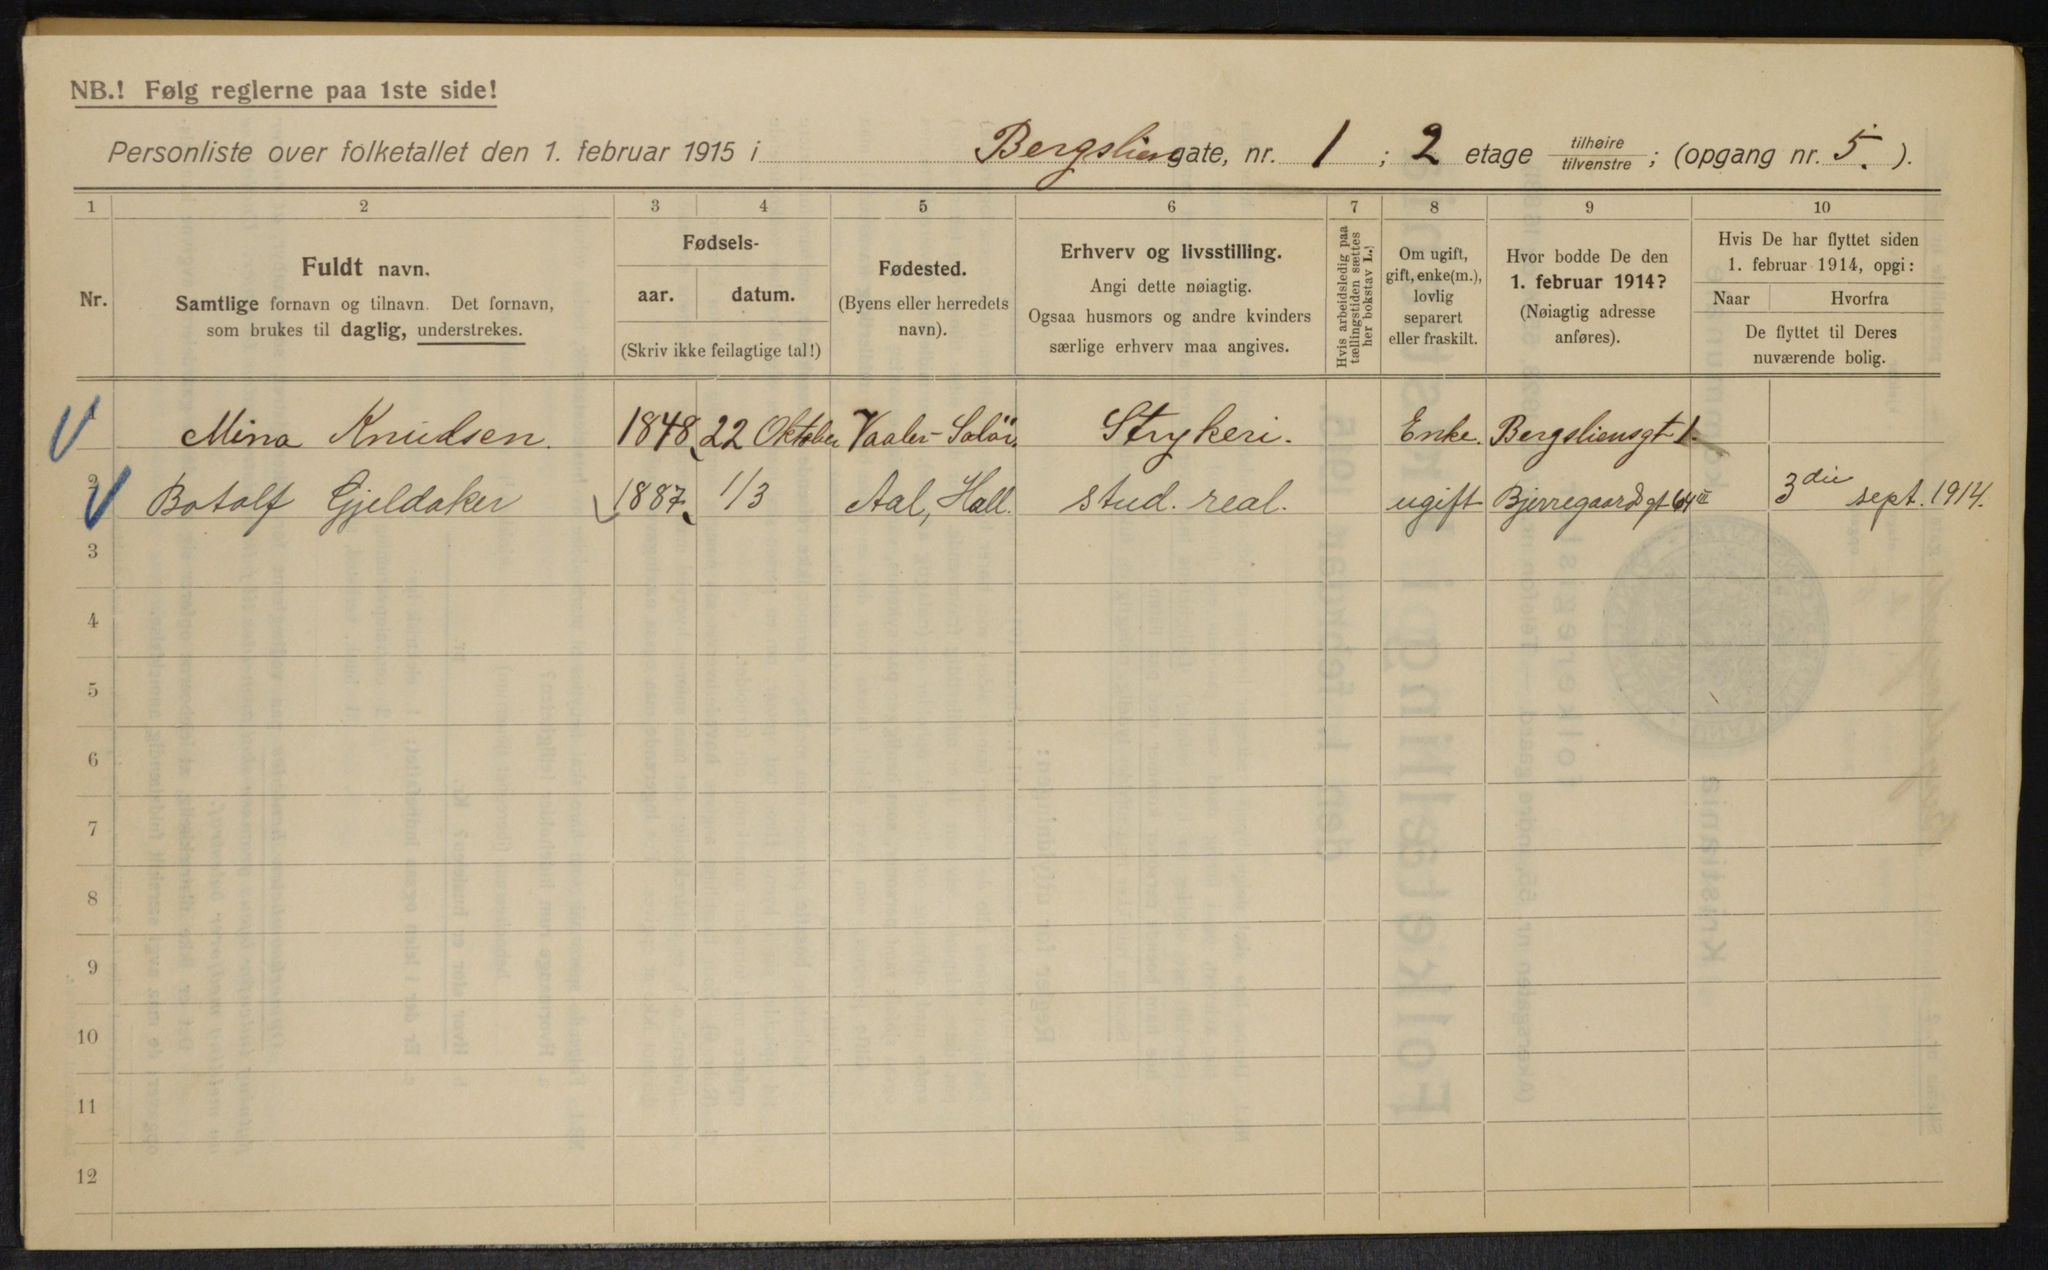 NB.! Følg reglerne paa 1ste side!
Personliste over folketallet den 1. februar 1915 i Bergsliens gate, nr. 1 ; 2 etage tilhøire tilvenstre ; (opgang nr. 5. ).
1 2 3 4 5 6 7 8 9 10
Nr.
Fuldt navn.
Samtlige fornavn og tilnavn. Det fornavn,
som brukes til daglig, understrekes.
Fødsels-
aar. datum.
(Skriv ikke feilagtige tal!)
Fødested.
(Byens eller herredets
navn).
Erhverv og livsstilling.
Angi dette nøiagtig.
Ogsaa husmors og andre kvinders
særlige erhverv maa angives.
Hvis arbeidsledig paa
tællingstiden sættes
her bokstav L.
Om ugift,
gift, enke(m.),
lovlig
separert
eller fraskilt.
Hvor bodde De den
1. februar 1914?
(Nøiagtig adresse
anføres).
Hvis De har flyttet siden
1. februar 1914, opgi:
Naar Hvorfra
De flyttet til Deres
nuværende bolig.
1 Mina Knudsen. 1848 22 Oktober Vaaler-Solör. Strykeri. Enke. Bergsliensgt 1.
2 Botolf Gjeldaker 1887 1/3 Aal, Hall. stud. real. ugift Bjerregaardsgt 64 III 3die sept. 1914.
3
4
5
6
7
8
9
10
11
12